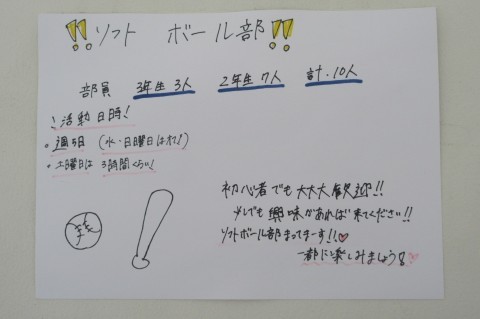 !!ソフト ボール部!!
部員 3年生 3人 2年生 7人 計.10人
!活動日時!
・週5日 (水・日曜日はオフ!)
・土曜日は 3時間くらい!
初心者でも大大大歓迎!!
少しでも興味があれば来てください!!
ソフトボール部まってまーす!!♡
一緒に楽しみましょう♡